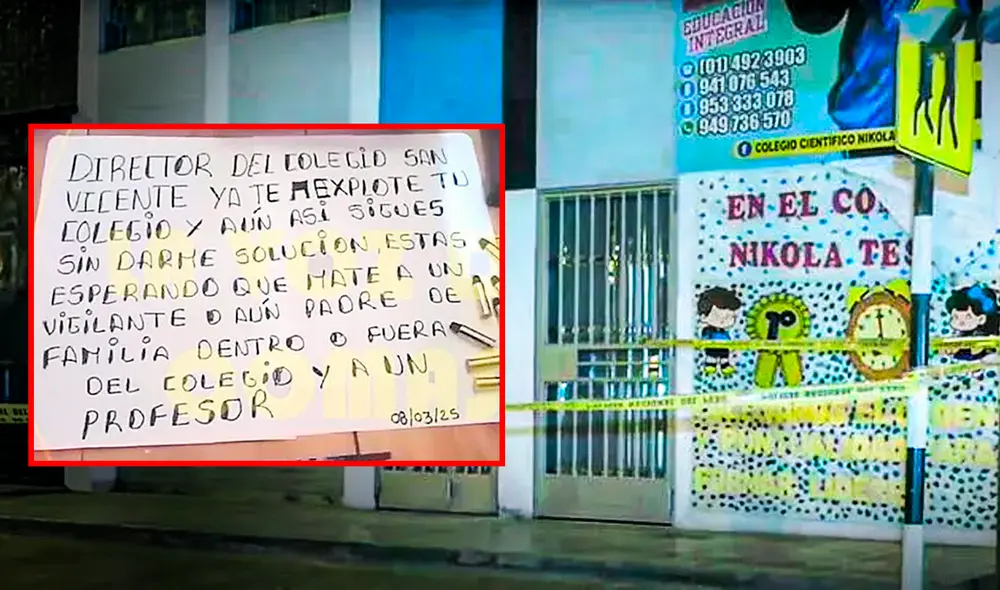 DIRECTOR DEL COLEGIO SAN
VICENTE YA TE EXPLOTE TU
COLEGIO Y AÚN ASI SIGUES
SIN DARME SOLUCION, ESTAS
ESPERANDO QUE MATE A UN
VIGILANTE O AÚN PADRE DE
FAMILIA DENTRO O FUERA
DEL COLEGIO Y A UN
PROFESOR
08/03/25
EDUCACIÓN
INTEGRAL
(01) 492 3903
941 076 543
953 333 078
949 736 570
COLEGIO CIENTÍFICO NIKOLA
EN EL CO
NIKOLA TES
1°